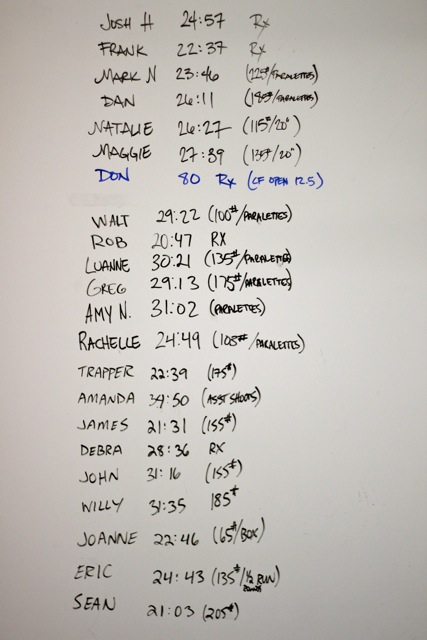 JOSH H 24:57 Rx
FRANK 22:37 Rx
MARK N 23:46 (225#/PARALETTES)
DAN 26:11 (185#/PARALETTES)
NATALIE 26:27 (115#/20")
MAGGIE 27:39 (135#/20")
DON 80 Rx (CF OPEN 12.5)
WALT 29:22 (100#/PARALETTES)
ROB 20:47 RX
LUANNE 30:21 (135#/PARALETTES)
GREG 29:13 (175#/PARALETTES)
AMY N. 31:02 (PARALETTES)
RACHELLE 24:49 (108#/PARALETTES)
TRAPPER 22:39 (175#)
AMANDA 34:50 (ASST SHOOTS)
JAMES 21:31 (155#)
DEBRA 28:36 RX
JOHN 31:16 (155#)
WILLY 31:35 185#
JOANNE 22:46 (65#/BOX)
ERIC 24:43 (135#/1/2 RUN)
SEAN 21:03 (205#)